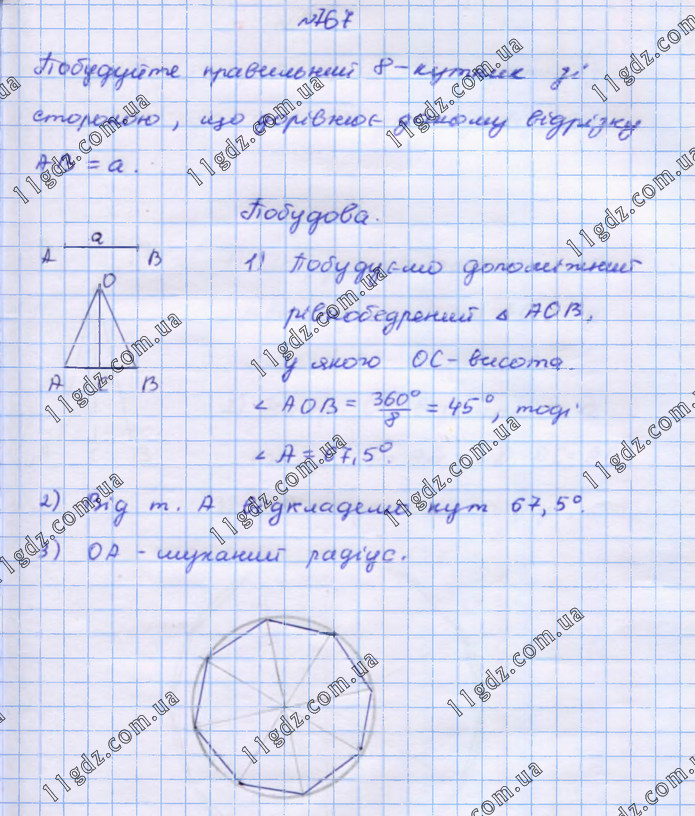 №767
Побудуйте правильний 8-кутник зі
стороною, що дорівнює даному відрізку
AB = a.
Побудова.
a
A B
O
A C B
1) Побудуємо допоміжний
рівнобедрений △ AOB,
у якого OC - висота.
∠ AOB = 360°/8 = 45°, тоді
∠ A = 67,5°.
2) Від т. A відкладемо кут 67,5°.
3) OA - шуканий радіус.
11gdz.com.ua